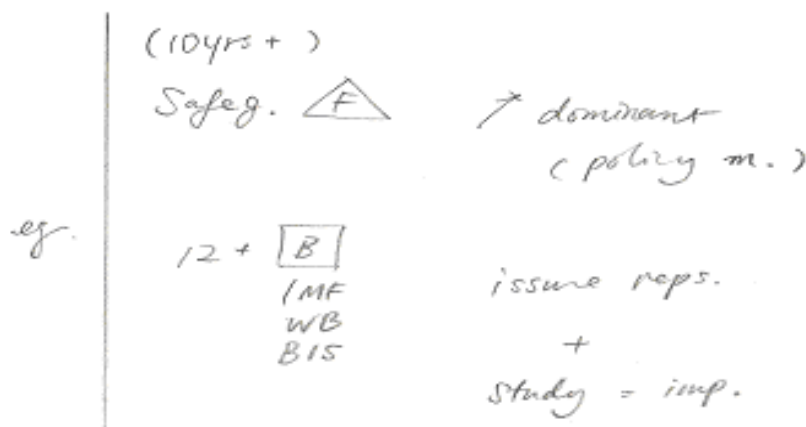 (10yrs + )
Safeg. F ↗ dominant
(policy m.)
eg.
12 + B
IMF
WB
BIS
issure reps.
+
study = imp.